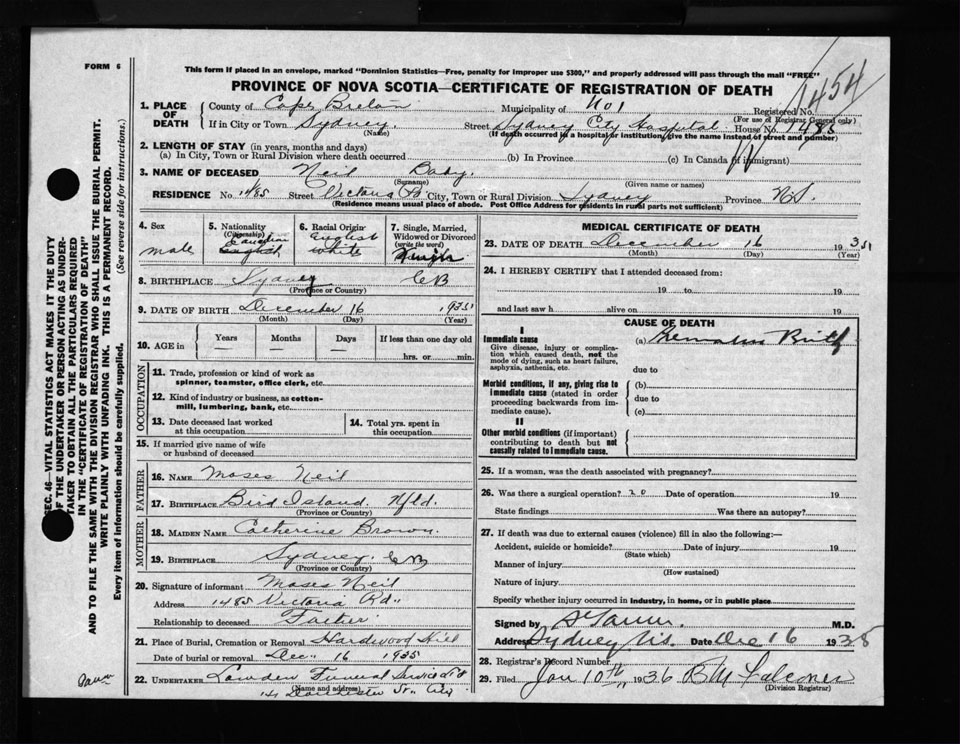 FORM 6
This form if placed in an envelope, marked "Dominion Statistics—Free, penalty for improper use $300," and properly addressed will pass through the mail "FREE"
PROVINCE OF NOVA SCOTIA—CERTIFICATE OF REGISTRATION OF DEATH
1454
1. PLACE OF DEATH
County of Cape Breton Municipality of No 1 Registered No.
(For use of Registrar General only)
If in City or Town Sydney. Street Sydney City Hospital House No. 1485
(Name) (If death occurred in a hospital or institution, give the name instead of street and number)
2. LENGTH OF STAY (in years, months and days)
(a) In City, Town or Rural Division where death occurred (b) In Province (c) In Canada (if immigrant)
3. NAME OF DECEASED Neil Baby.
(Surname) (Given name or names)
RESIDENCE No. 1485 Street Victoria Rd. City, Town or Rural Division Sydney Province N.S.
(Residence means usual place of abode. Post Office Address for residents in rural parts not sufficient)
4. Sex male
5. Nationality (Citizenship) Canadian
6. Racial Origin white
7. Single, Married, Widowed or Divorced (write the word) Single
8. BIRTHPLACE Sydney CB
(Province or Country)
9. DATE OF BIRTH December 16 1935
(Month) (Day) (Year)
10. AGE in Years Months Days If less than one day old
hrs. or min.
OCCUPATION
11. Trade, profession or kind of work as spinner, teamster, office clerk, etc.
12. Kind of industry or business, as cotton-mill, lumbering, bank, etc.
13. Date deceased last worked at this occupation
14. Total yrs. spent in this occupation
15. If married give name of wife or husband of deceased
FATHER
16. NAME Moses Neil
17. BIRTHPLACE Bird Island. Nfld.
(Province or Country)
MOTHER
18. MAIDEN NAME Catherine Brown.
19. BIRTHPLACE Sydney. CB
(Province or Country)
20. Signature of informant Moses Neil
Address 1485 Victoria Rd.,
Relationship to deceased Father
21. Place of Burial, Cremation or Removal Hardwood Hill
Date of burial or removal Dec. 16 1935
22. UNDERTAKER Lowden Funeral Service Ltd
(Name and address)
14 Dorchester St. City
MEDICAL CERTIFICATE OF DEATH
23. DATE OF DEATH December 16 1935
(Month) (Day) (Year)
24. I HEREBY CERTIFY that I attended deceased from:
19 to 19
and last saw h alive on 19
CAUSE OF DEATH
I
Immediate cause
Give disease, injury or complication which caused death, not the mode of dying, such as heart failure, asphyxia, asthenia, etc.
(a) Premature Birth
due to
Morbid conditions, if any, giving rise to immediate cause (stated in order proceeding backwards from immediate cause).
(b)
due to
(c)
II
Other morbid conditions (if important) contributing to death but not causally related to immediate cause.
25. If a woman, was the death associated with pregnancy?
26. Was there a surgical operation? no Date of operation 19
State findings Was there an autopsy?
27. If death was due to external causes (violence) fill in also the following:—
Accident, suicide or homicide? Date of injury 19
(State which)
Manner of injury
(How sustained)
Nature of injury
Specify whether injury occurred in industry, in home, or in public place
Signed by M.D.
Address Sydney N.S. Date Dec 16 1935
28. Registrar's Record Number
29. Filed Jan 10th 1936 B M Falconer
(Division Registrar)
SEC. 46—VITAL STATISTICS ACT MAKES IT THE DUTY
OF THE UNDERTAKER OR PERSON ACTING AS UNDER-
TAKER TO OBTAIN ALL THE PARTICULARS REQUIRED
IN THE "CERTIFICATE OF REGISTRATION OF DEATH"
AND TO FILE THE SAME WITH THE DIVISION REGISTRAR WHO SHALL ISSUE THE BURIAL PERMIT.
WRITE PLAINLY WITH UNFADING INK. THIS IS A PERMANENT RECORD.
Every item of information should be carefully supplied. (See reverse side for instructions.)